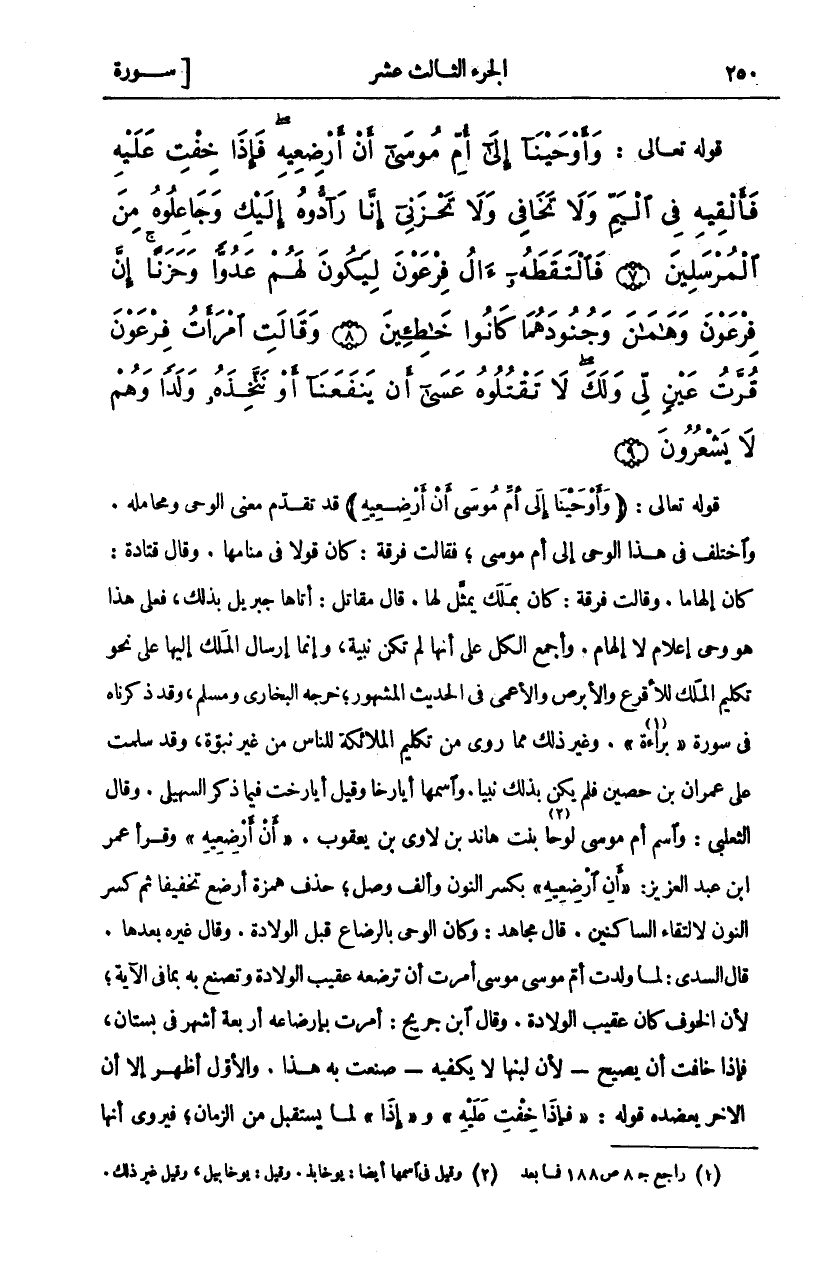 ٢٥٠ الجزء الثالث عشر [ سورة
قوله تعالى : وَأَوْحَيْنَآ إِلَىٰٓ أُمِّ مُوسَىٰٓ أَنْ أَرْضِعِيهِ ۖ فَإِذَا خِفْتِ عَلَيْهِ
فَأَلْقِيهِ فِى ٱلْيَمِّ وَلَا تَخَافِى وَلَا تَحْزَنِىٓ إِنَّا رَآدُّوهُ إِلَيْكِ وَجَاعِلُوهُ مِنَ
ٱلْمُرْسَلِينَ ﴿٧﴾ فَٱلْتَقَطَهُۥٓ ءَالُ فِرْعَوْنَ لِيَكُونَ لَهُمْ عَدُوًّا وَحَزَنًا ۚ إِنَّ
فِرْعَوْنَ وَهَـٰمَـٰنَ وَجُنُودَهُمَا كَانُوا خَـٰطِـِٔينَ ﴿٨﴾ وَقَالَتِ ٱمْرَأَتُ فِرْعَوْنَ
قُرَّتُ عَيْنٍ لِّى وَلَكَ ۖ لَا تَقْتُلُوهُ عَسَىٰٓ أَن يَنفَعَنَآ أَوْ نَتَّخِذَهُۥ وَلَدًا وَهُمْ
لَا يَشْعُرُونَ ﴿٩﴾
قوله تعالى : ﴿ وَأَوْحَيْنَا إِلَى أُمِّ مُوسَى أَنْ أَرْضِعِيهِ ﴾ قد تقدّم معنى الوحى ومحامله .
وٱختلف فى هذا الوحى إلى أم موسى ؛ فقالت فرقة : كان قولا فى منامها . وقال قتادة :
كان إلهاما . وقالت فرقة : كان بمَلَك يمثَّل لها . قال مقاتل : أتاها جبريل بذلك ، فعلى هذا
هو وحى إعلام لا إلهام . وأجمع الكل على أنها لم تكن نبية ، وإنما إرسال المَلَك إليها على نحو
تكليم المَلَك للأقرع والأبرص والأعمى فى الحديث المشهور ؛ خرجه البخارى ومسلم ، وقد ذكرناه
فى سورة « براءة » (١) . وغير ذلك مما روى من تكليم الملائكة للناس من غير نبوّة ، وقد سلمت
على عمران بن حصين فلم يكن بذلك نبيا . وٱسمها أيارخا وقيل أيارخت فيما ذكر السهيلى . وقال
الثعلبى : وٱسم أم موسى لوحا (٢) بنت هاند بن لاوى بن يعقوب . « أَنْ أَرْضِعِيهِ » وقرأ عمر
ابن عبد العزيز : « أَنِ ٱرْضِعِيهِ » بكسر النون وألف وصل ؛ حذف همزة أرضع تخفيفا ثم كسر
النون لالتقاء الساكنين . قال مجاهد : وكان الوحى بالرضاع قبل الولادة . وقال غيره بعدها .
قال السدى : لما ولدت أمّ موسى موسى أمرت أن ترضعه عقيب الولادة وتصنع به بما فى الآية ؛
لأن الخوف كان عقيب الولادة . وقال ٱبن جريج : أمرت بإرضاعه أربعة أشهر فى بستان ،
فإذا خافت أن يصيح — لأن لبنها لا يكفيه — صنعت به هذا . والأوّل أظهر إلا أن
الاخر يعضده قوله : « فَإِذَا خِفْتِ عَلَيْهِ » و « إِذَا » لما يستقبل من الزمان ؛ فيروى أنها
(١) راجع جـ ٨ ص ١٨٨ فما بعد (٢) وقيل فى ٱسمها أيضا : يوخابد . وقيل : يوخابيل ، وقيل غير ذلك .